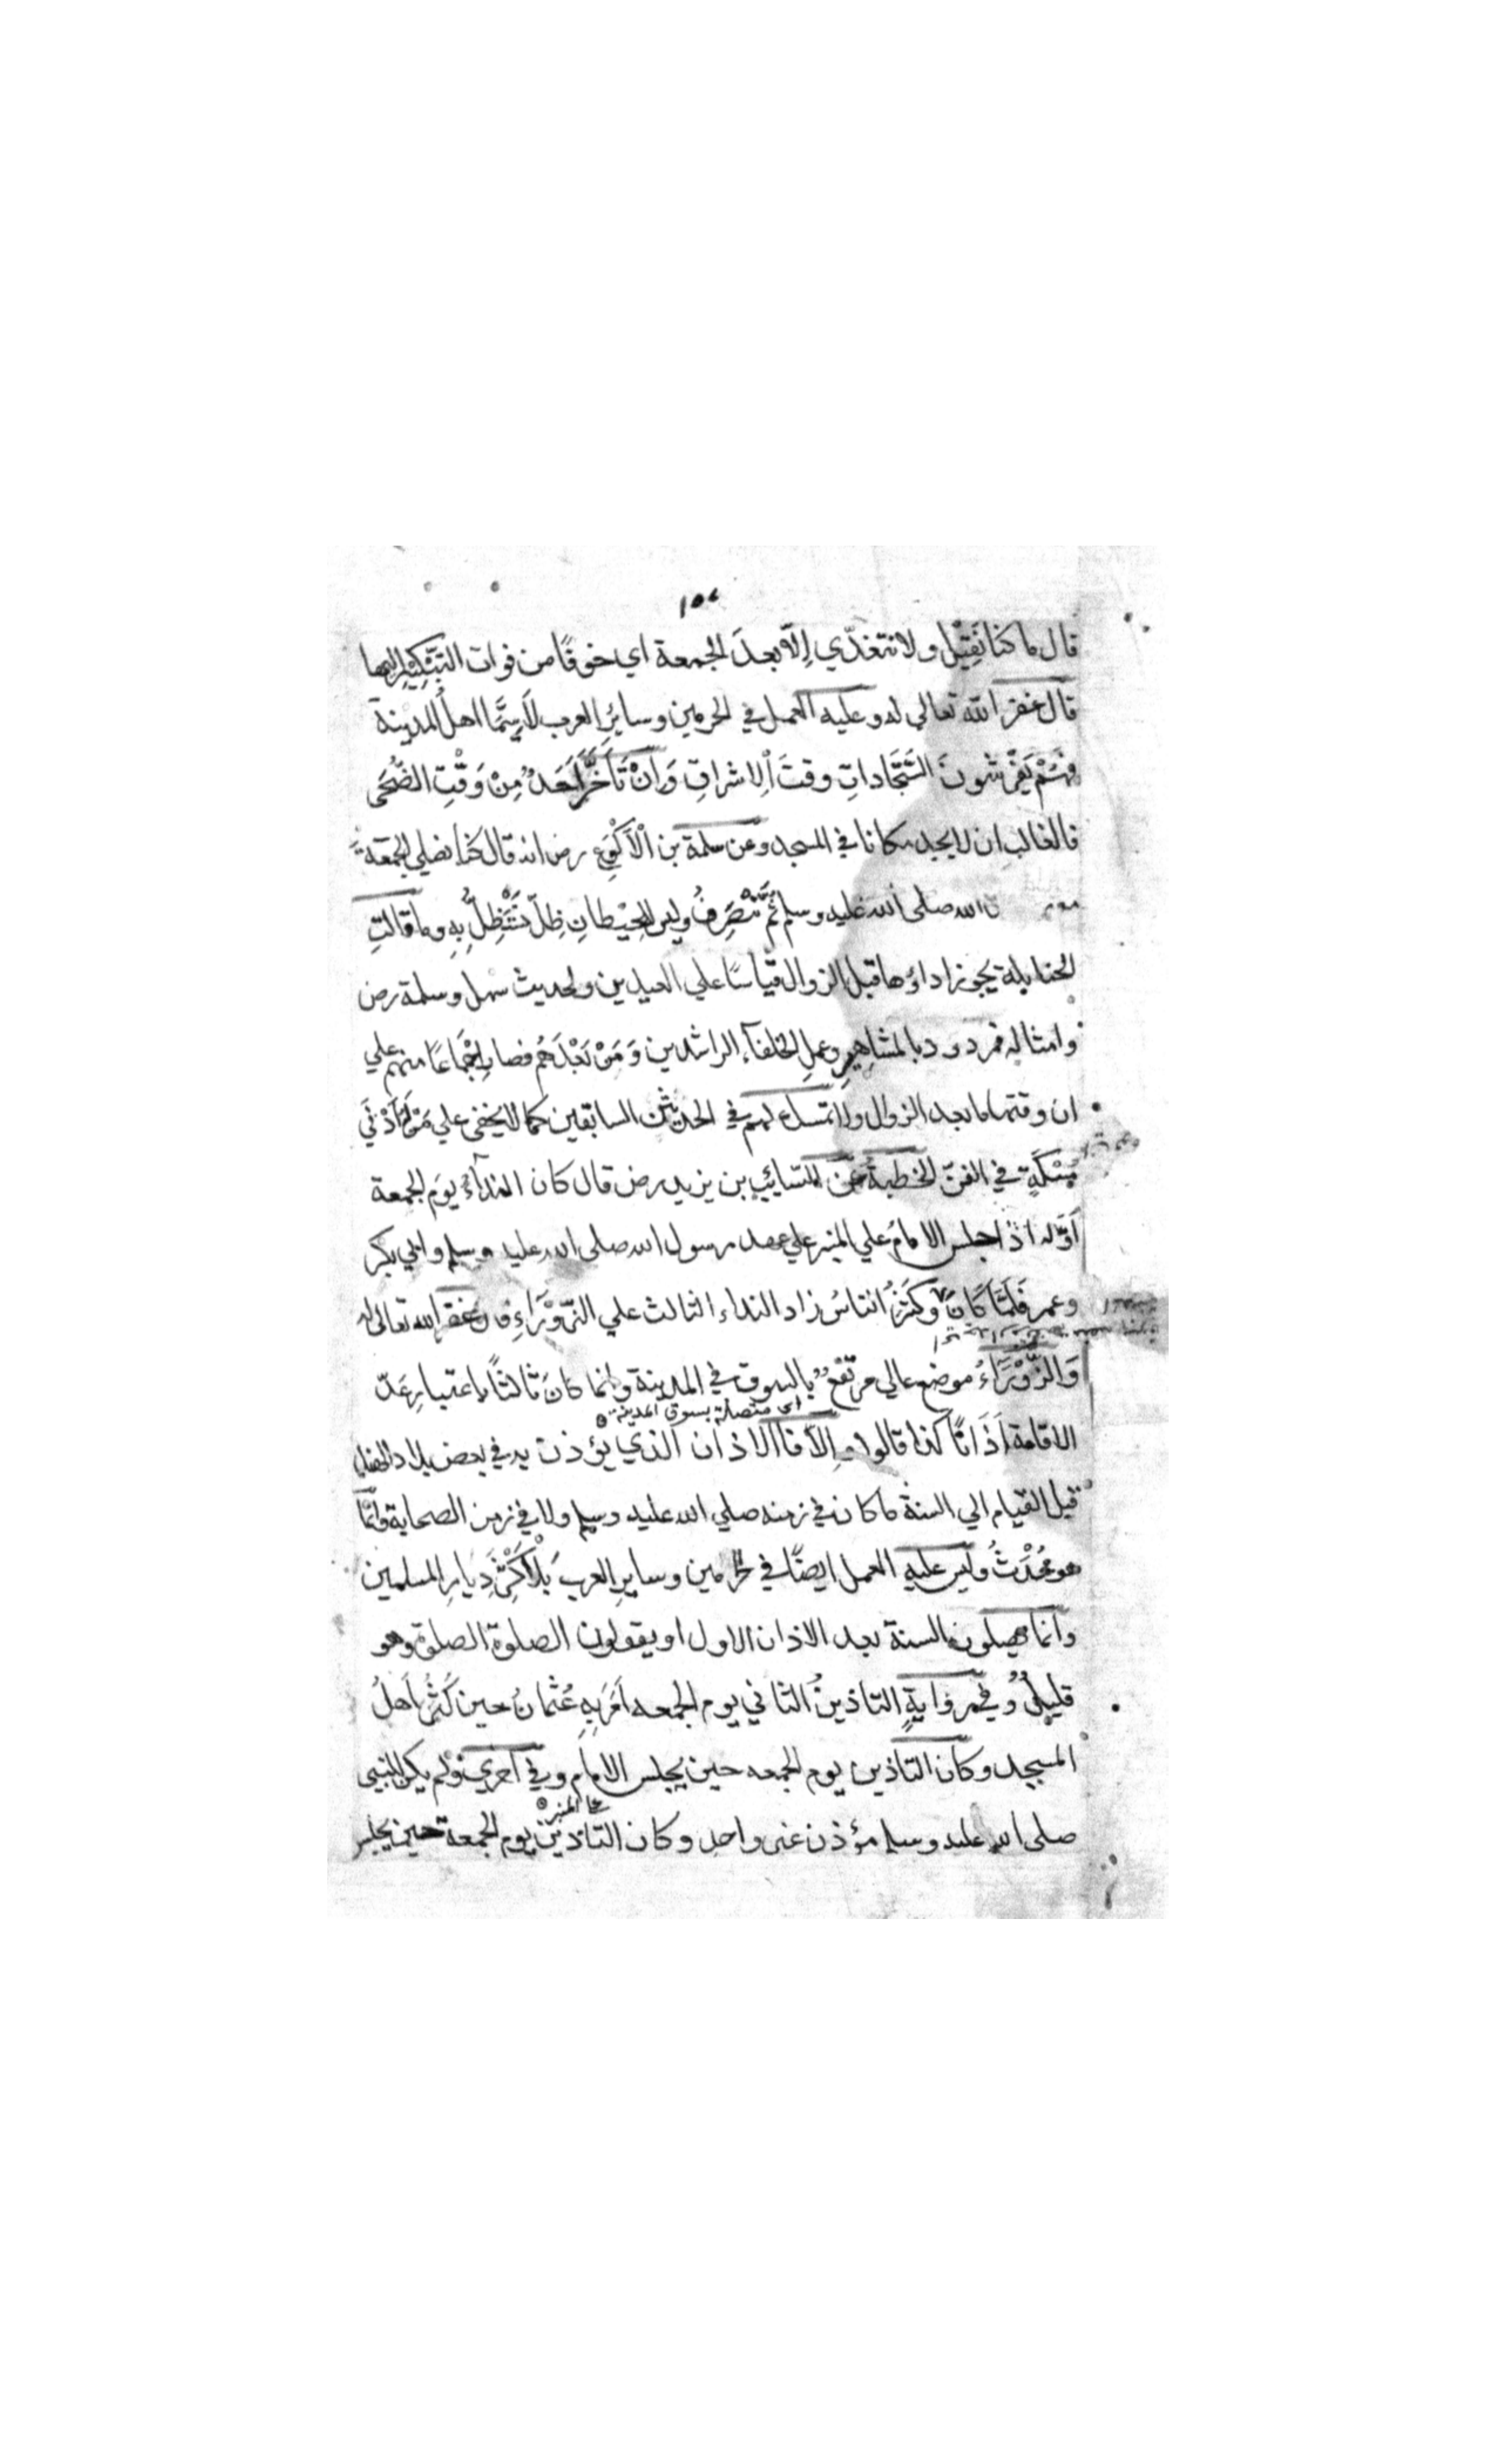 قال ما كنا نَقِيْل ولا نتغدّي إلّا بعدَ الجمعة اي خوفًا من فوات التَبْكِيْرِ اليها
قال غفر الله تعالي له وعليه العمل في الحرمين وسائرِ العرب لاَسِيَّمَا اهلُ المدينة
فهُمْ يَفْرِشونَ السَجَّاداتِ وقتَ اْلاِشراقِ وَاِنْ تَاَخَّرَ اَحَدٌ مِنْ وَقْتِ الضُحَى
فالغالب ان لا يجد مكانا في المسجد وعن سلمة بن الْاَكْوَعِ رض انه قال كنا نصلي الجمعة
الله صلى الله عليه وسلم ثُمَّ نَنْصَرِفُ وليس للحِيْطانِ ظِلّ نَسْتَظِلُّ بِهِ وما قالتِ
الحنابلة يجوز اداؤها قبل الزوال قياسًا علي العيدين ولحديث سهل وسلمة رض
وامثاله فمردود بالمشاهِيرِ وعملِ الخلفآء الراشدين وَمَنْ بَعْدَهُم فصار اِجْمَاعًا منهم علي
ان وقتها ما بعد الزوال ولا تمسك لهم في الحديثين السابقين كما لا يخفى علي مَنْ لَهُ اَدْنَي
مُسْكَةٍ في الفنّ الخطبةُ عَنْ السّائِبِ بن يزيد رض قال كان النداءُ يومَ الجمعة
اَوَّله اذا جلس الامامُ علي المنبر علي عهد رسول الله صلى الله عليه وسلم وابي بكر
وعمر فَلَمَّا كَانَ وَكَثُرَ الناسُ زاد النداء الثالث علي الزَّوْرَآءِ قال غفر الله تعالى له
وَالزَّوْرَآءُ موضع عالي مرتفعٌ بالسوق في المدينة وانما كانَ ثالثًا باعتبارِ عَدّ
اى متصلة بسوق المدينة
الاقامة اَذَانًا كذا قالوا وإلّا فالاذان الذي يؤذن به في بعض بلاد الهند
قبل القيام الي السنة ما كان في زمنه صلي الله عليه وسلم ولا في زمن الصحابة وانّما
هو مُحْدَثٌ وليس عليه العمل ايضًا في الحرمين وسايرِ العرب بَلْ اَكْثَرِ دِيارِ المسلمين
وانما يصلون السنة بعد الاذان الاول او يقولون الصلوة الصلوة وهو
قليلٌ وفي رِوَايةٍ التاذينُ الثاني يوم الجمعه اَمَرَ بِهِ عُثمانُ حين كَثُرَ اَهلُ
المسجد وكان التاذين يوم الجمعه حين يجلس الامام وفي اخري ولم يكن للنبي
على المنبر
صلى الله عليه وسلم مؤذن غير واحد وكان التاذين يوم الجمعة حين يجلس